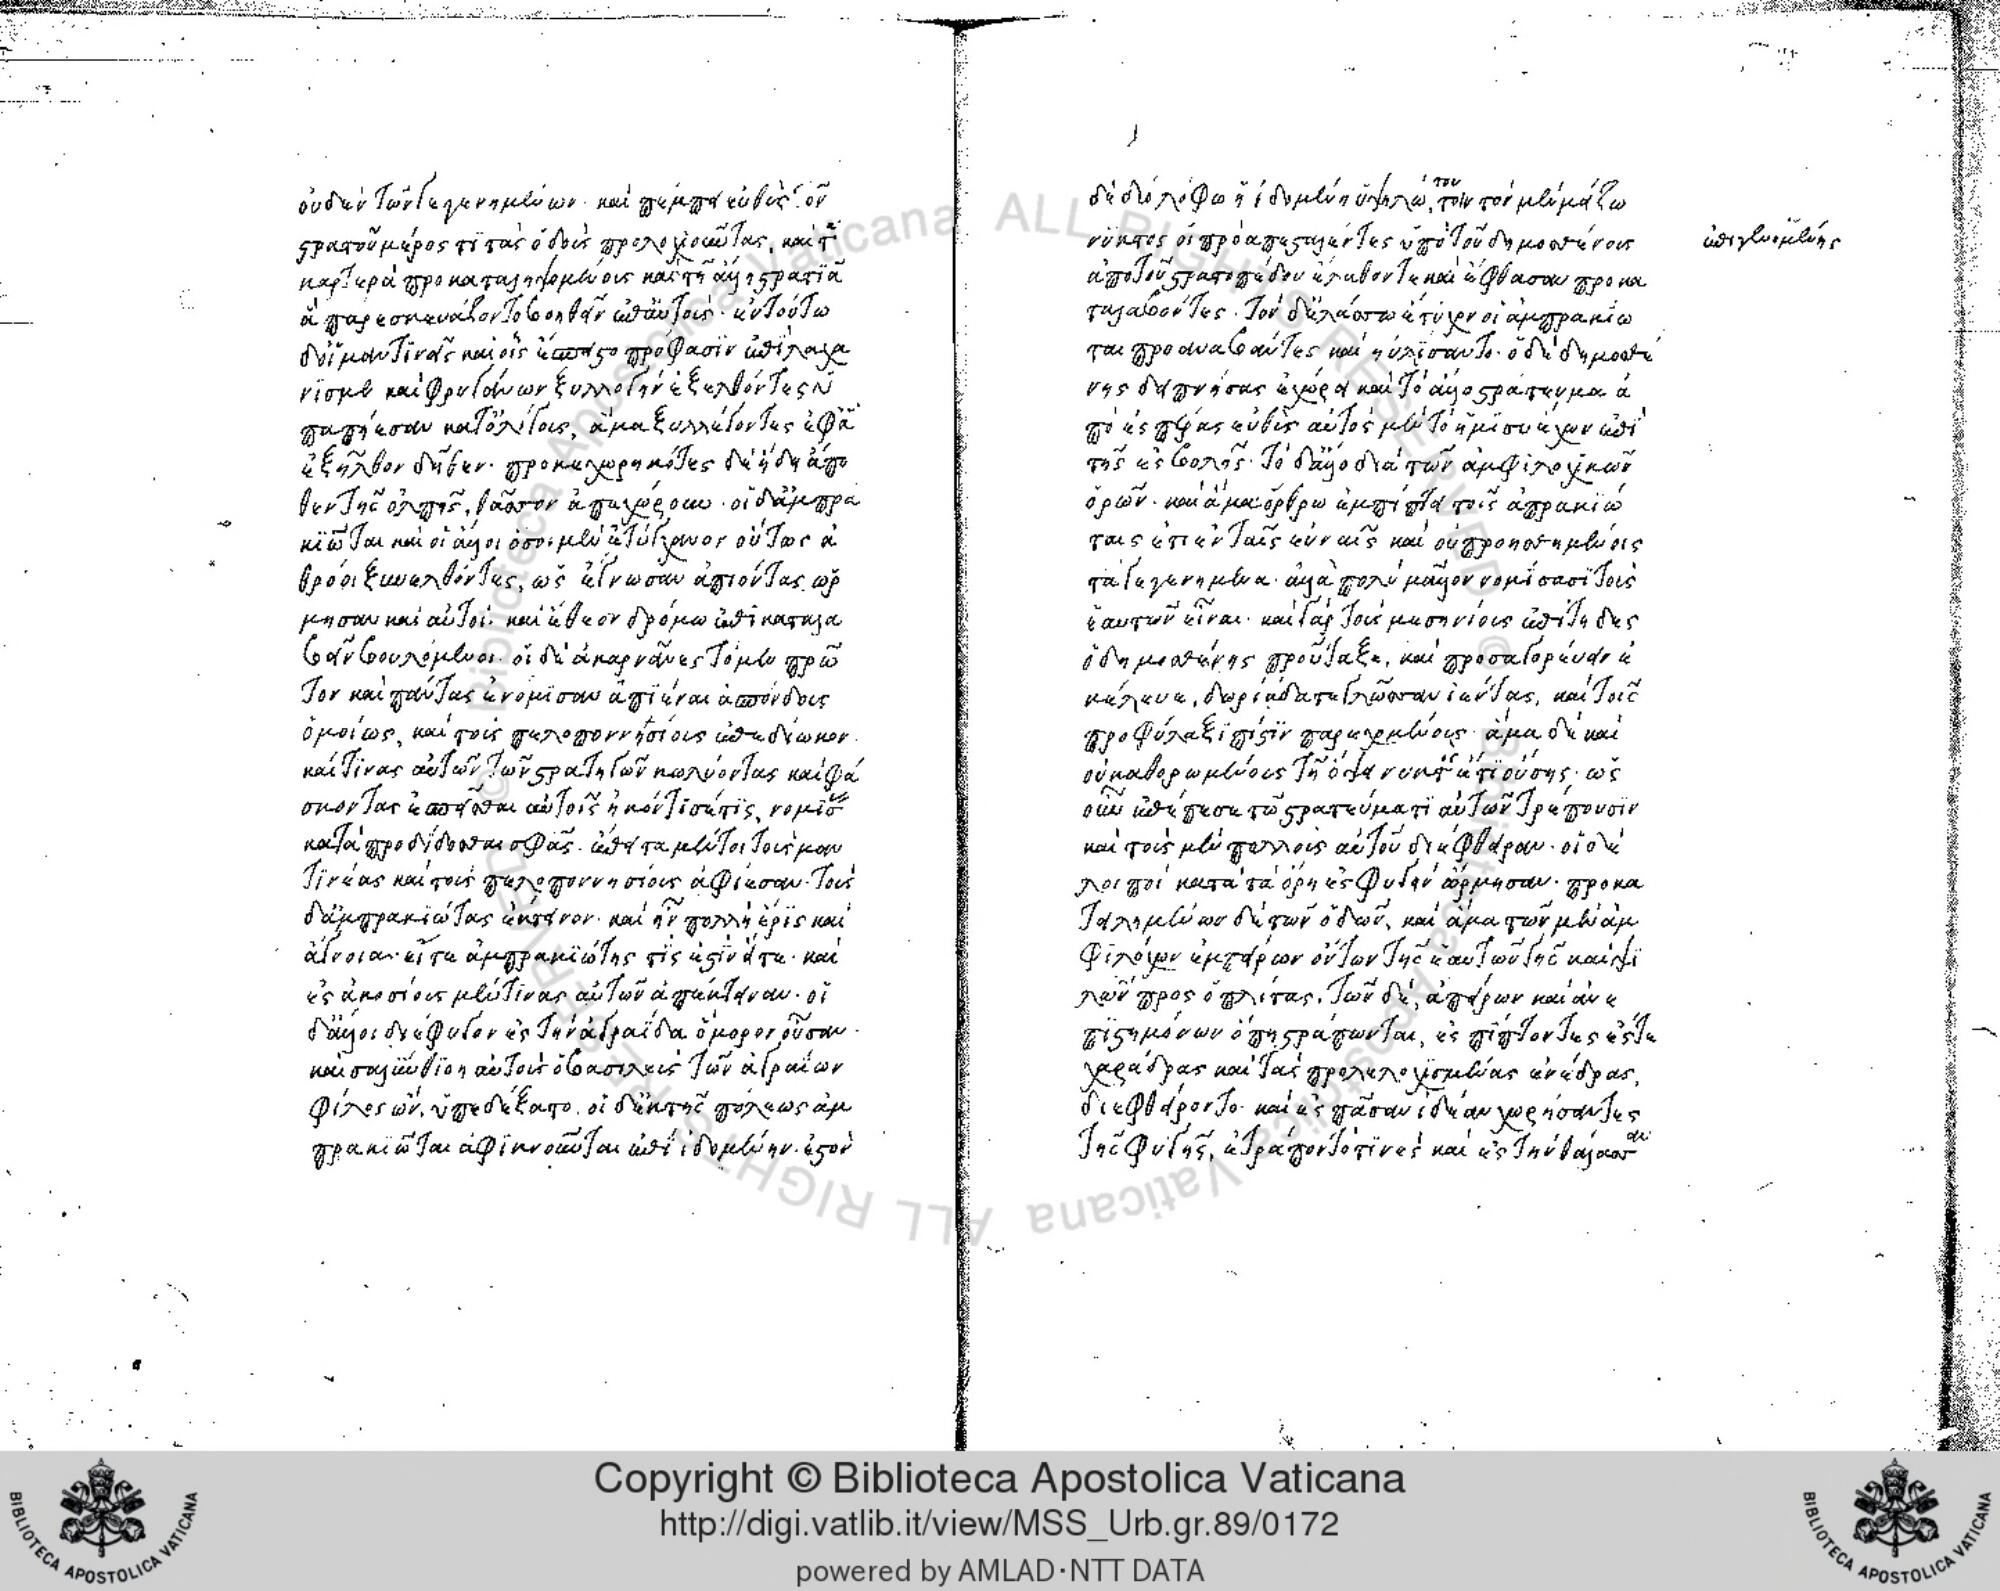 οὐδὲν τῶν γεγενημένων· καὶ πέμπει εὐθὺς τοῦ
στρατοῦ μέρος τι τὰς ὁδοὺς προλοχιοῦντας, καὶ τὰ
καρτερὰ προκαταληψομένους καὶ τῇ ἄλλῃ στρατιᾷ
ἅμα παρεσκευάζοντο βοηθεῖν ἐπ' αὐτούς· ἐν τούτω
δ' οἱ μαντινῆς καὶ οἷς ἔσπειστο πρόφασιν ἐπὶ λαχα
νισμὸν καὶ φρυγάνων ξυλλογὴν ἐξελθόντες
ὑπαπήεσαν κατ' ὀλίγους, ἅμα ξυλλέγοντες ἐφ' ἃ
ἐξῆλθον δῆθεν· προκεχωρηκότες δὲ ἤδη ἄπω
θεν τῆς ὄλπης, θᾶσσον ἀπεχώρουν· οἱ δ' ἀμπρα
κιῶται καὶ οἱ ἄλλοι ὅσοι μὲν ἐτύγχανον οὕτως ἀ
θρόοι ξυνελθόντες, ὡς ἔγνωσαν ἀπιόντας, ὥρ
μησαν καὶ αὐτοί· καὶ ἔθεον δρόμω ἐπικαταλα
βεῖν βουλόμενοι· οἱ δὲ ἀκαρνᾶνες τὸ μὲν πρῶ
τον καὶ πάντας ἐνόμισαν ἀπιέναι ἀσπόνδους
ὁμοίως, καὶ τοὺς πελοποννησίους ἐπεδίωκον·
καί τινας αὐτῶν τῶν στρατηγῶν κωλύοντας καὶ φά
σκοντας ἐσπεῖσθαι αὐτοῖς ἠκόντισέ τις, νομίσας
καταπροδίδοσθαι σφᾶς· ἔπειτα μέντοι τοὺς μαν
τινέας καὶ τοὺς πελοποννησίους ἀφίεσαν· τοὺς
δ' ἀμπρακιώτας ἔκτεινον· καὶ ἦν πολλὴ ἔρις καὶ
ἄγνοια· εἴτε ἀμπρακιώτης τίς ἐστιν εἴτε· καὶ
ἐς διακοσίους μέν τινας αὐτῶν ἀπέκτειναν· οἱ
δ' ἄλλοι διέφυγον ἐς τὴν ἀγραΐδα ὅμορον οὖσαν·
καὶ σαλύνθιος αὐτοὺς ὁ βασιλεὺς τῶν ἀγραίων
φίλος ὤν, ὑπεδέξατο. οἱ δ' ἐκ τῆς πόλεως ἀμ
πρακιῶται ἀφικνοῦνται ἐπὶ ἰδομένην· ἐστὸν
δὲ δύο λόφω ἡ ἰδομένη ὑψηλώ, τούτοιν τὸν μὲν μείζω
νυκτὸς οἱ προαπεσταλέντες ὑπὸ τοῦ δημοσθένους
ἐπιγενομένης
ἀπὸ τοῦ στρατοπέδου ἔλαθόν τε καὶ ἔφθασαν προκα
ταλαβόντες· τὸν δ' ἐλάσσω ἔτυχον οἱ ἀμπρακιῶ
ται προαναβάντες καὶ ηὐλίσαντο· ὁ δὲ δημοσθέ
νης δειπνήσας ἐχώρει καὶ τὸ ἄλλο στράτευμα ἀ
πὸ ἑσπέρας εὐθὺς αὐτὸς μὲν τὸ ἥμισυ ἔχων ἐπὶ
τῆς ἐσβολῆς· τὸ δ' ἄλλο διὰ τῶν ἀμφιλοχικῶν
ὀρῶν· καὶ ἅμα ὄρθρω ἐμπίπτει τοῖς ἀπρακιώ
ταις ἔτι ἐν ταῖς εὐναῖς καὶ οὐ προῃσθημένοις
τὰ γεγενημένα· ἀλλὰ πολὺ μᾶλλον νομίσασι τοὺς
ἑαυτῶν εἶναι· καὶ γὰρ τοὺς μεσηνίους ἐπίτηδες
ὁ δημοσθένης προὔταξε, καὶ προσαγορεύειν ἐ
κέλευε, δωρίδα τε γλῶσσαν ἱέντας, καὶ τοῖς
προφύλαξι πίστιν παρεχομένους· ἅμα δὲ καὶ
οὐ καθορωμένους τῇ ὄψει νυκτὸς ἔτι οὔσης· ὡς
οὖν ἐπέπεσε τῷ στρατεύματι αὐτῶν τρέπουσιν
καὶ τοὺς μὲν πολλοὺς αὐτοῦ διέφθειραν· οἱ δὲ
λοιποὶ κατὰ τὰ ὄρη ἐς φυγὴν ὥρμησαν· προκα
τειλημμένων δὲ τῶν ὁδῶν, καὶ ἅμα τῶν μὲν ἀμ
φιλόχων ἐμπείρων ὄντων τῆς ἑαυτῶν γῆς καὶ ψι
λῶν πρὸς ὁπλίτας, τῶν δὲ, ἀπείρων καὶ ἀνε
πιστημόνων ὅπῃ τράπωνται, ἐσπίπτοντες ἔς τε
χαράδρας καὶ τὰς προλελοχισμένας ἐνέδρας,
διεφθείροντο· καὶ ἐς πᾶσαν ἰδέαν χωρήσαντες
τῆς φυγῆς, ἐτράποντό τινες καὶ ἐς τὴν θάλασσαν
Copyright © Biblioteca Apostolica Vaticana
http://digi.vatlib.it/view/MSS_Urb.gr.89/0172
powered by AMLAD·NTT DATA